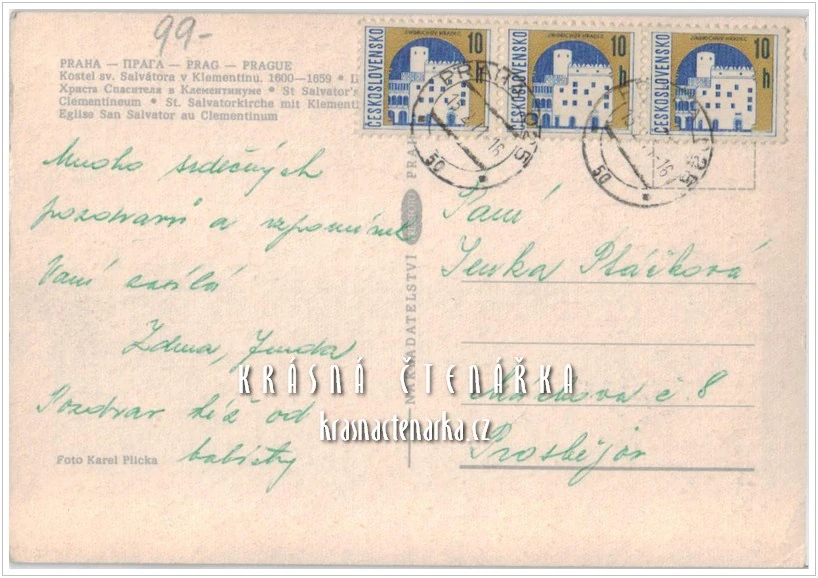 99-
PRAHA — ПРАГА — PRAG — PRAGUE
Kostel sv. Salvátora v Klementinu. 1600—1859 •
Христа Спасителя в Клементинуме • St Salvator's
Clementineum • St. Salvatorkirche mit Klementi
Eglise San Salvator au Clementinum
JINDŘICHŮV HRADEC
ČESKOSLOVENSKO 10 h
ČESKOSLOVENSKO 10 h
ČESKOSLOVENSKO 10 h
Mnoho srdečných
pozdravů a vzpomínek
Vám zasílá
Zdena, Jenda
Pozdrav též od
babičky
Foto Karel Plicka
NAKLADATELSTVÍ ORBIS PRAHA
Paní
Jenka Ptáčková
č. 8
Prostějov
KRÁSNÁ ČTENÁŘKA
krasnactenarka.cz